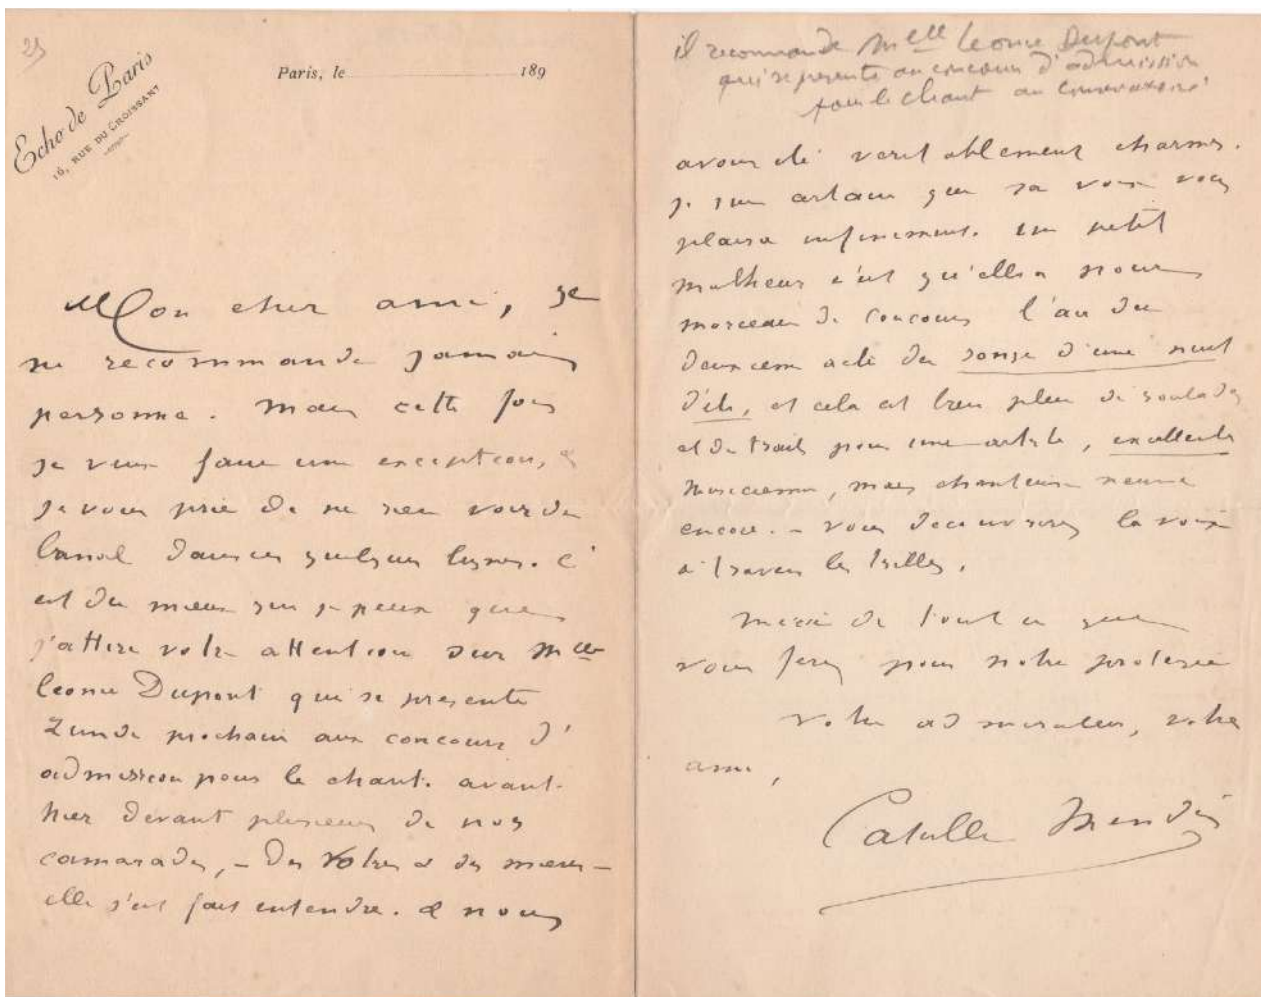 25
Echo de Paris
16, RUE DU CROISSANT
Paris, le 189
Mon cher ami, je
ne recommande jamais
personne. Mais cette fois
je veux faire une exception, &
je vous prie de ne rien voir de
banal dans ces quelques lignes. C'
est du mieux que je peux que
j'attire votre attention sur Mlle
Leonie Dupont qui se presente
Lundi prochain aux concours d'
admission pour le chant. avant-
hier devant plusieurs de nos
camarades, – des votres & des miens –
elle s'est fait entendre. & nous
il recommande Melle Leonie Dupont
qui se presente au concours d'admission
pour le chant au conservatoire
avons été veritablement charmés.
je suis certain que sa voix vous
plaira infiniment. un petit
malheur c'est qu'elle a pour
morceau de concours l'air du
deuxieme acte du songe d'une nuit
d'été, et cela est bien plein de roulades
et de traits pour une artiste, excellente
musicienne, mais chanteuse neuve
encore. – vous decouvrirez la voix
à travers les trilles.
merci de tout ce que
vous ferez pour notre protegée
votre admirateur, votre
ami,
Catulle Mendès